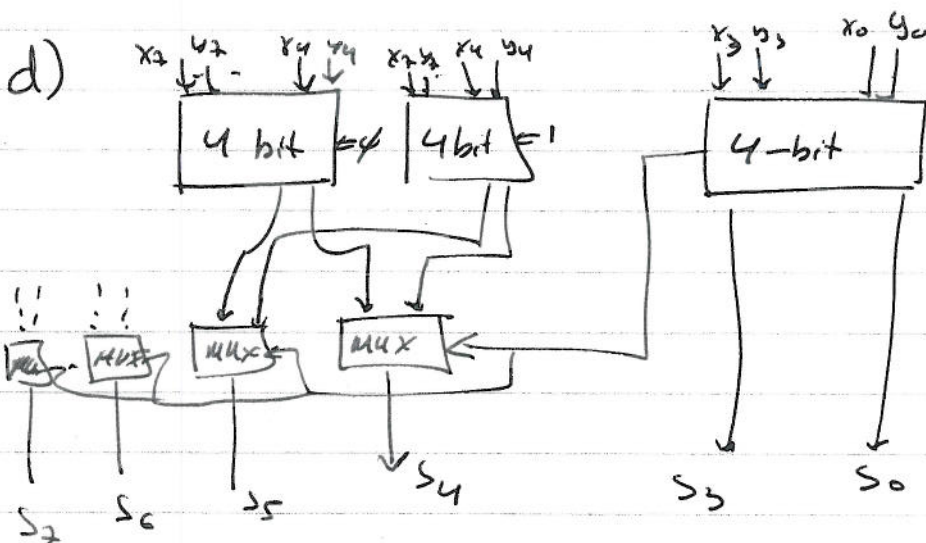 d)
x7 y7 x4 y4 x7 y7 x4 y4 x3 y3 x0 y0
4 bit 0 4bit 1 4-bit
MUX MUX MUX
S7 S6 S5 S4 S3 S0